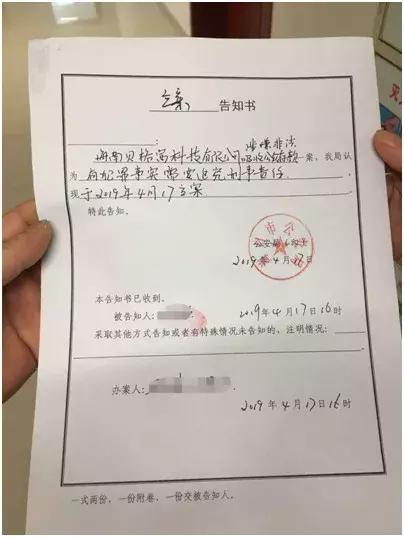 立案 告知书
海南贝格富科技有限公司涉嫌非法
吸收公众存款一案,我局认
为有犯罪事实需要追究刑事责任
现于2019年4月17立案
特此告知。
公安局(印)
2019年4月17日
本告知书已收到。
被告知人: 2019年4月17日16时
采取其他方式告知或者有特殊情况未告知的,注明情况:
办案人:
2019年4月17日16时
一式两份,一份附卷,一份交被告知人。